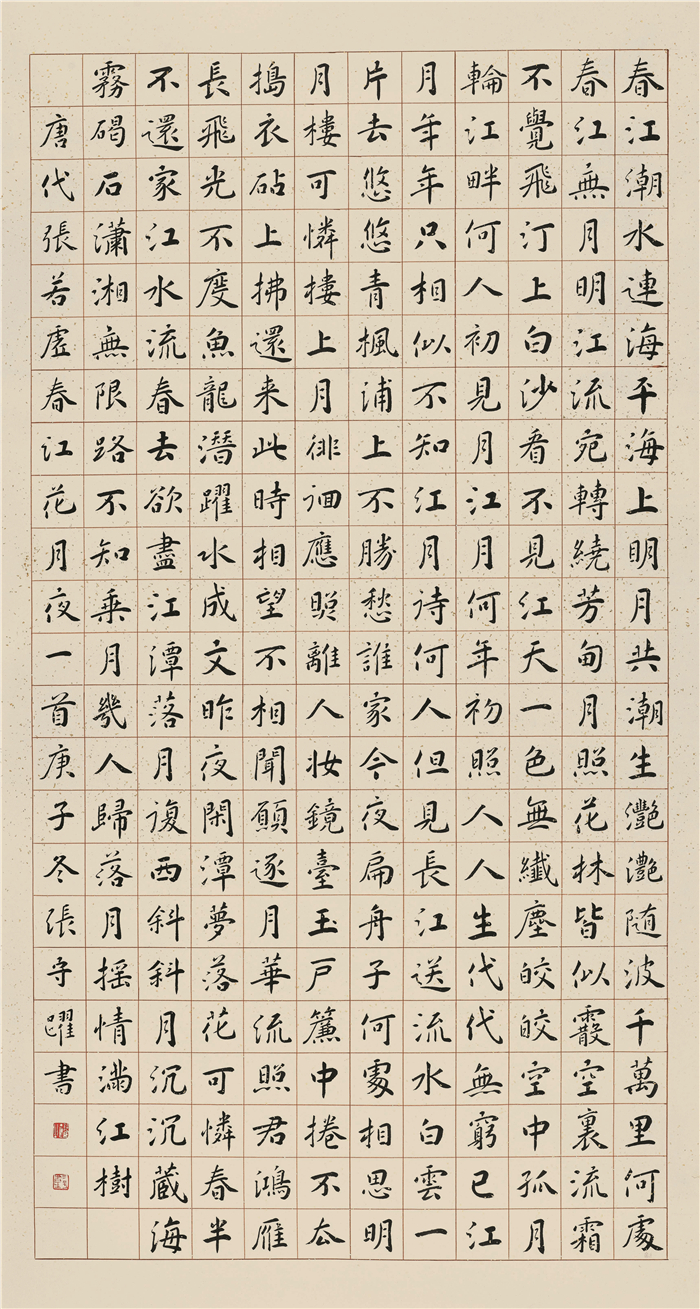 春江潮水連海平海上明月共潮生灔灔随波千萬里何處
春江無月明江流宛轉繞芳甸月照花林皆似霰空裏流霜
不覺飛汀上白沙看不見江天一色無纖塵皎皎空中孤月
輪江畔何人初見月江月何年初照人人生代代無窮已江
月年年只相似不知江月待何人但見長江送流水白雲一
片去悠悠青楓浦上不勝愁誰家今夜扁舟子何處相思明
月樓可憐樓上月徘徊應照離人妝鏡臺玉戶簾中捲不去
搗衣砧上拂還来此時相望不相聞願逐月華流照君鴻雁
長飛光不度魚龍潛躍水成文昨夜閑潭夢落花可憐春半
不還家江水流春去欲盡江潭落月復西斜斜月沉沉藏海
霧碣石瀟湘無限路不知乘月幾人歸落月摇情满江樹
唐代張若虛春江花月夜一首庚子冬張守躍書